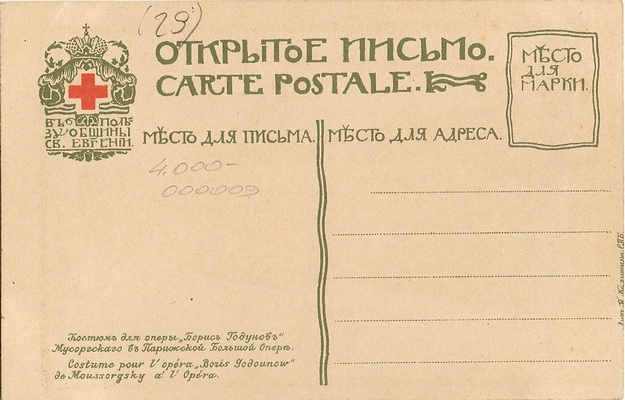 (29)
ОТКРЫТОЕ ПИСЬМО.
CARTE POSTALE.
МѢСТО
ДЛЯ
МАРКИ.
ВЪ ПОЛЬ-
ЗУ ОБЩИНЫ
СВ. ЕВГЕНІИ.
МѢСТО ДЛЯ ПИСЬМА.
МѢСТО ДЛЯ АДРЕСА.
4.000-
000003
Костюмъ для оперы „Борисъ Годуновъ“
Мусоргскаго въ Парижской Большой Оперѣ.
Costume pour l'opéra „Boris Godounow“
de Moussorgsky a' l' Opéra.